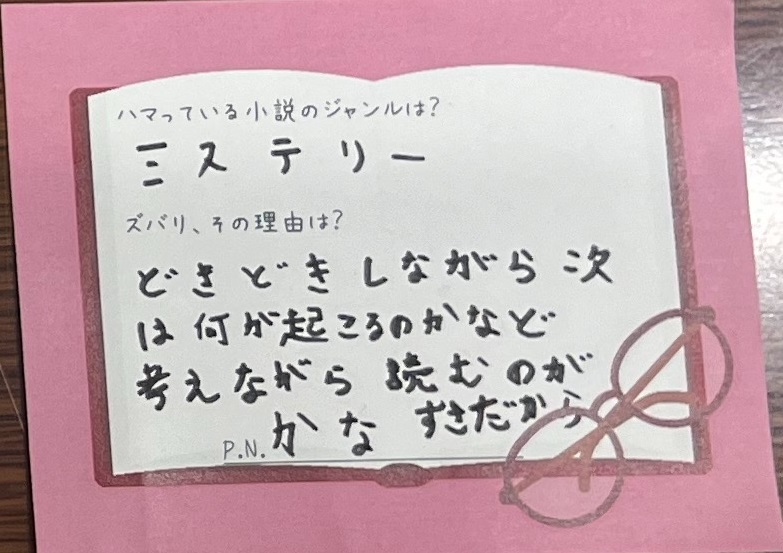 ハマっている小説のジャンルは?
ミステリー
ズバリ、その理由は?
どきどきしながら次
は何が起こるのかなど
考えながら読むのが
すきだから
P.N. かな